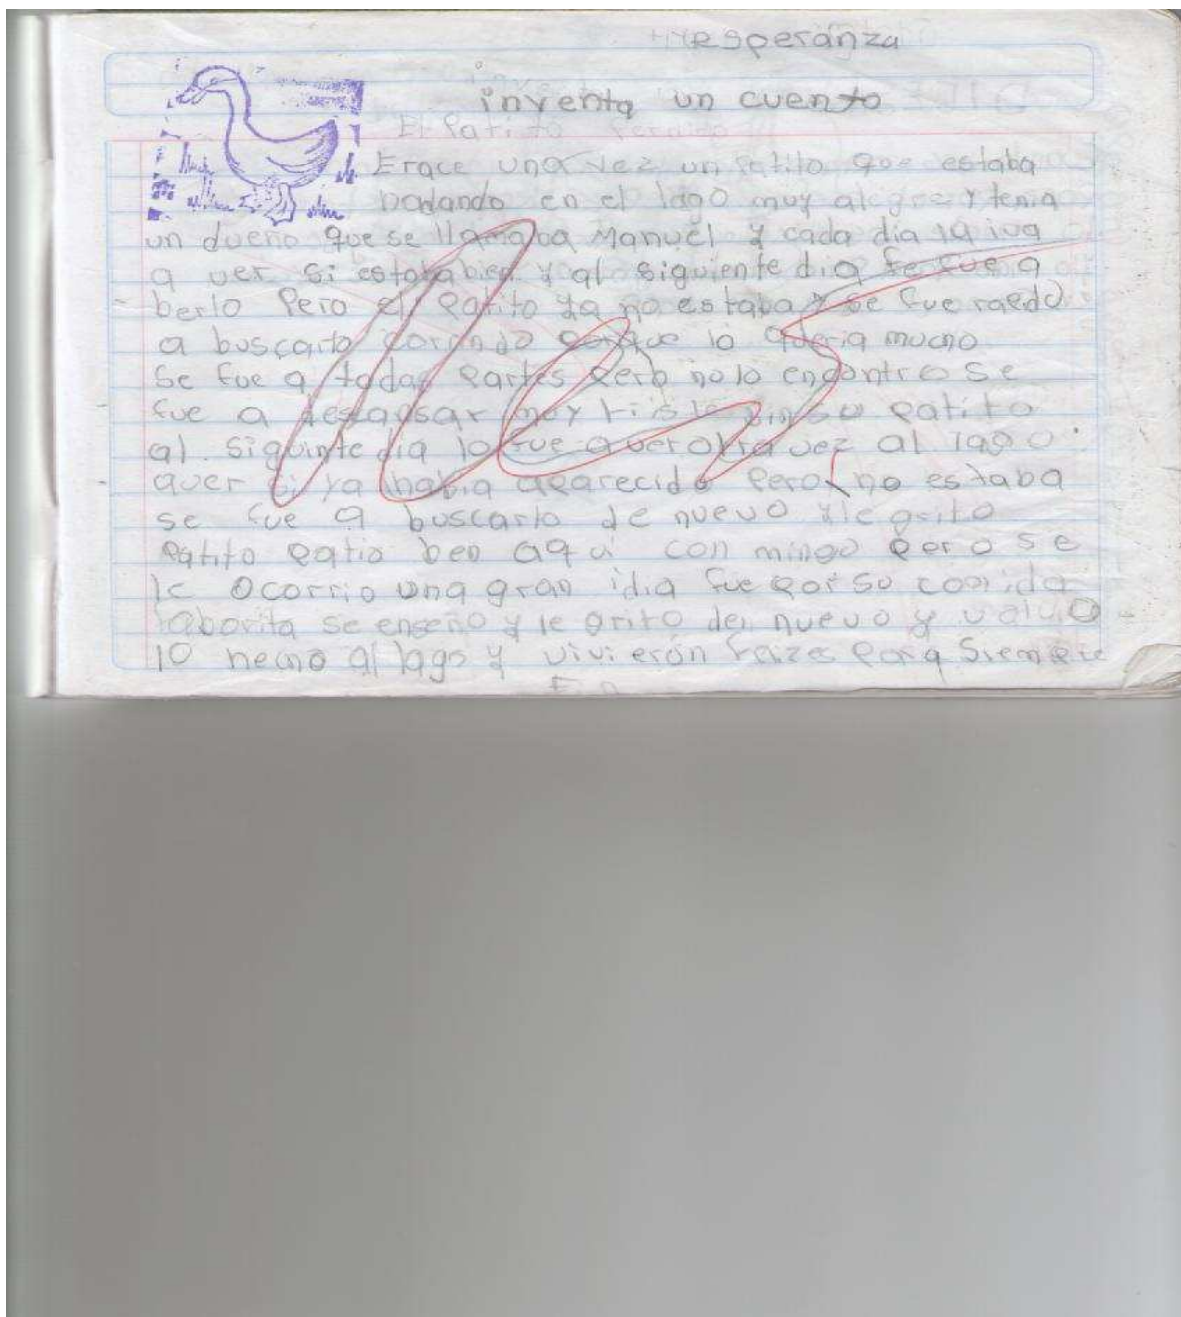 esperanza
inventa un cuento
El Patito Perdido
Erace una vez un patito que estaba
nadando en el lago muy alegre y tenia
un dueño que se llamaba Manuel y cada dia la iva
a ver si estaba bien y al siguiente dia se fue a
berlo Pero el patito ya no estaba y se fue
a buscarlo porque lo queria mucho
se fue a todas partes pero no lo encontro se
fue a muy triste sin su patito
al siguinte dia lo fue a ver otra vez al lago
aver si ya habia aparecido pero no estaba
se fue a buscarlo de nuevo y le grito
patito patio ben aqui con migo pero se
le ocorrio una gran idia fue por so comida
se enseño y le grito den nuevo y
al lago y vivieron para